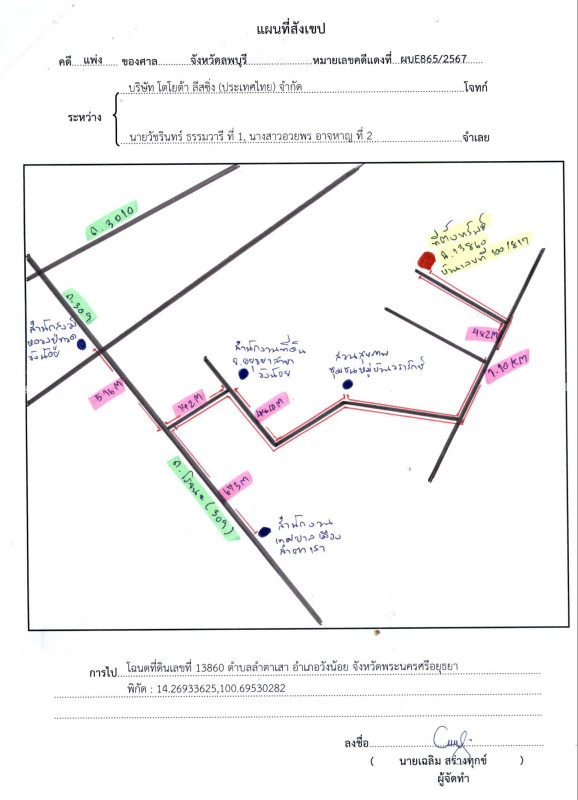 แผนที่สังเขป
คดี แพ่ง ของศาล จังหวัดลพบุรี หมายเลขคดีแดงที่ ผบE865/2567
บริษัท โตโยต้า ลีสซิ่ง (ประเทศไทย) จำกัด โจทก์
ระหว่าง
นายวัชรินทร์ ธรรมวารี ที่ 1, นางสาวอวยพร อาจหาญ ที่ 2 จำเลย
ถ. 3010
ที่ตั้งทรัพย์
ฉ. 13860
บ้านเลขที่ 100/817
ถ. 309
สำนักสงฆ์
หลวงปู่ทวด
วังน้อย
516M
142M
สำนักงานที่ดิน
จ.อยุธยา สาขา
วังน้อย
สวนสุขภาพ
ชุมชนหมู่บ้านวรารักษ์
442M
1.90 KM
ถ. โรจนะ (309)
673M
สำนักงาน
เทศบาลเมือง
ลำตาเสา
การไป โฉนดที่ดินเลขที่ 13860 ตำบลลำตาเสา อำเภอวังน้อย จังหวัดพระนครศรีอยุธยา
พิกัด : 14.26933625,100.69530282
ลงชื่อ
( นายเฉลิม สร้างทุกข์ )
ผู้จัดทำ